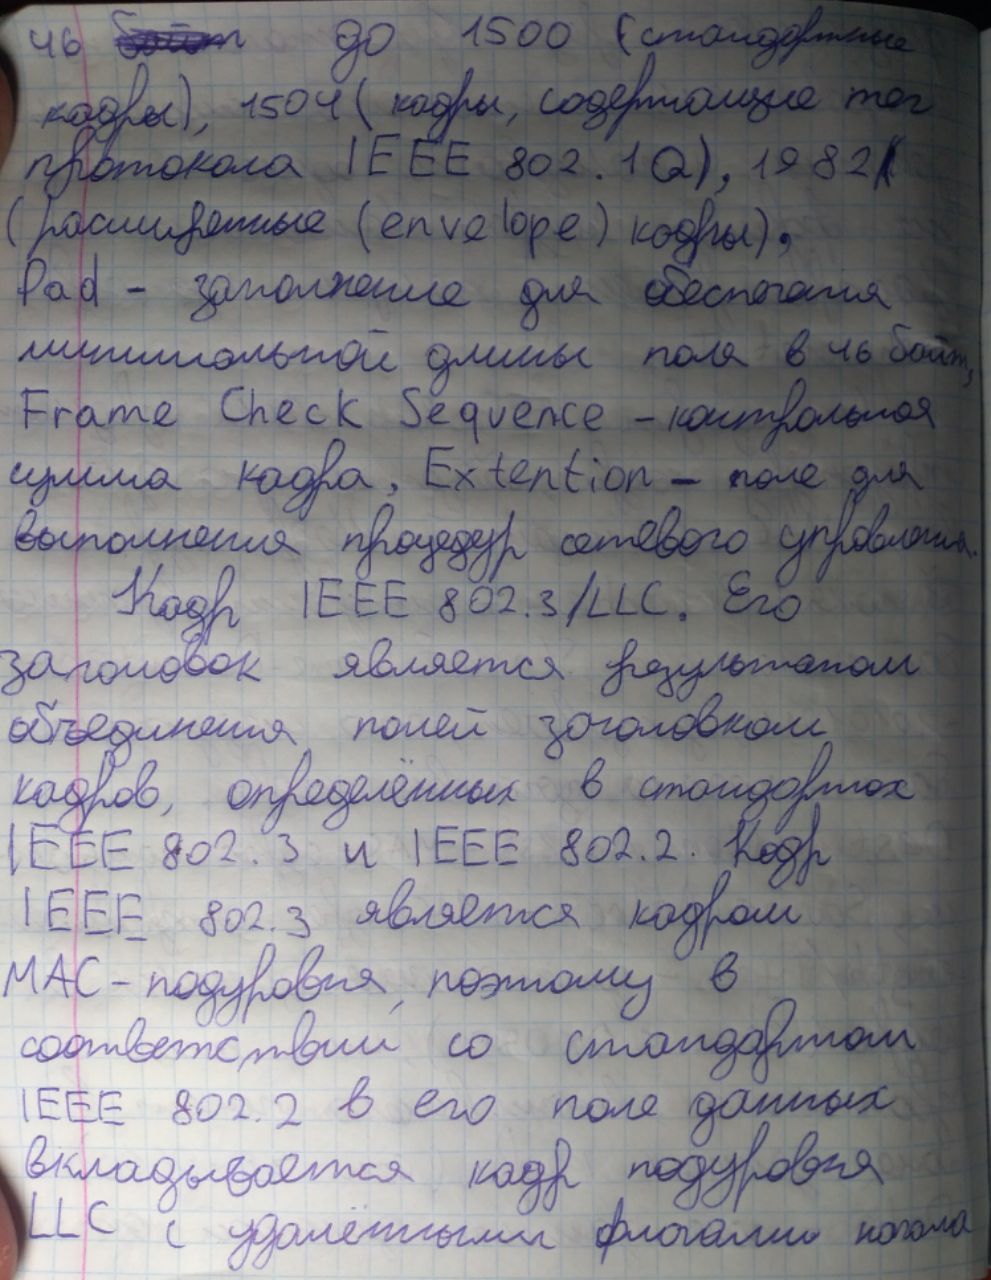 46 до 1500 (стандартные
кадры), 1504 (кадры, содержащие тег
протокола IEEE 802.1Q), 1982
(расширенные (envelope) кадры),
Pad - заполнение для обеспечения
минимальной длины поля в 46 байт,
Frame Check Sequence - контрольная
сумма кадра, Extention - поле для
выполнения процедур сетевого управления.
Кадр IEEE 802.3/LLC. Его
заголовок является результатом
объединения полей заголовком
кадров, определённых в стандартах
IEEE 802.3 и IEEE 802.2. Кадр
IEEE 802.3 является кадром
MAC-подуровня, поэтому в
соответствии со стандартом
IEEE 802.2 в его поле данных
вкладывается кадр подуровня
LLC с удалёнными флагами начала